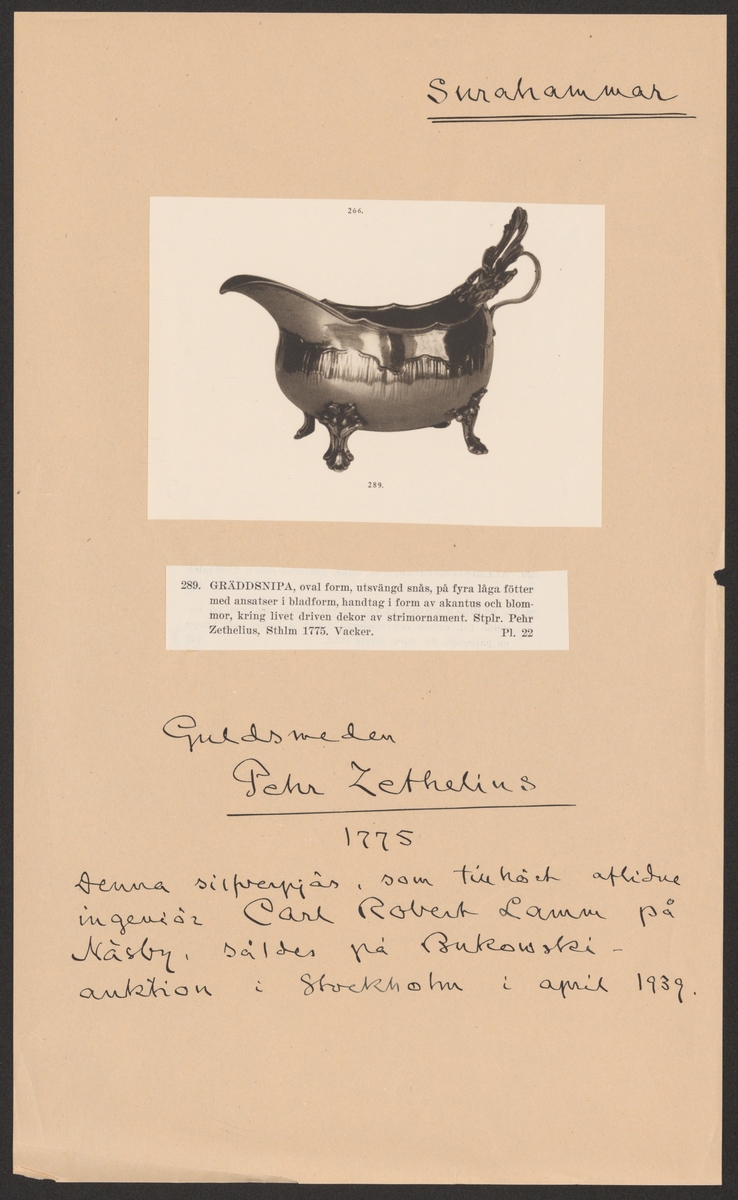 Surahammar
266.
289.
289. GRÄDDSNIPA, oval form, utsvängd snås, på fyra låga fötter
med ansatser i bladform, handtag i form av akantus och blom-
mor, kring livet driven dekor av strimornament. Stplr. Pehr
Zethelius, Sthlm 1775. Vacker. Pl. 22
Guldsmeden
Pehr Zethelius
1775
Denna silfverpjäs, som tillhört aflidne
ingeniör Carl Robert Lamm på
Näsby, såldes på Bukowski-
auktion i Stockholm i april 1939.